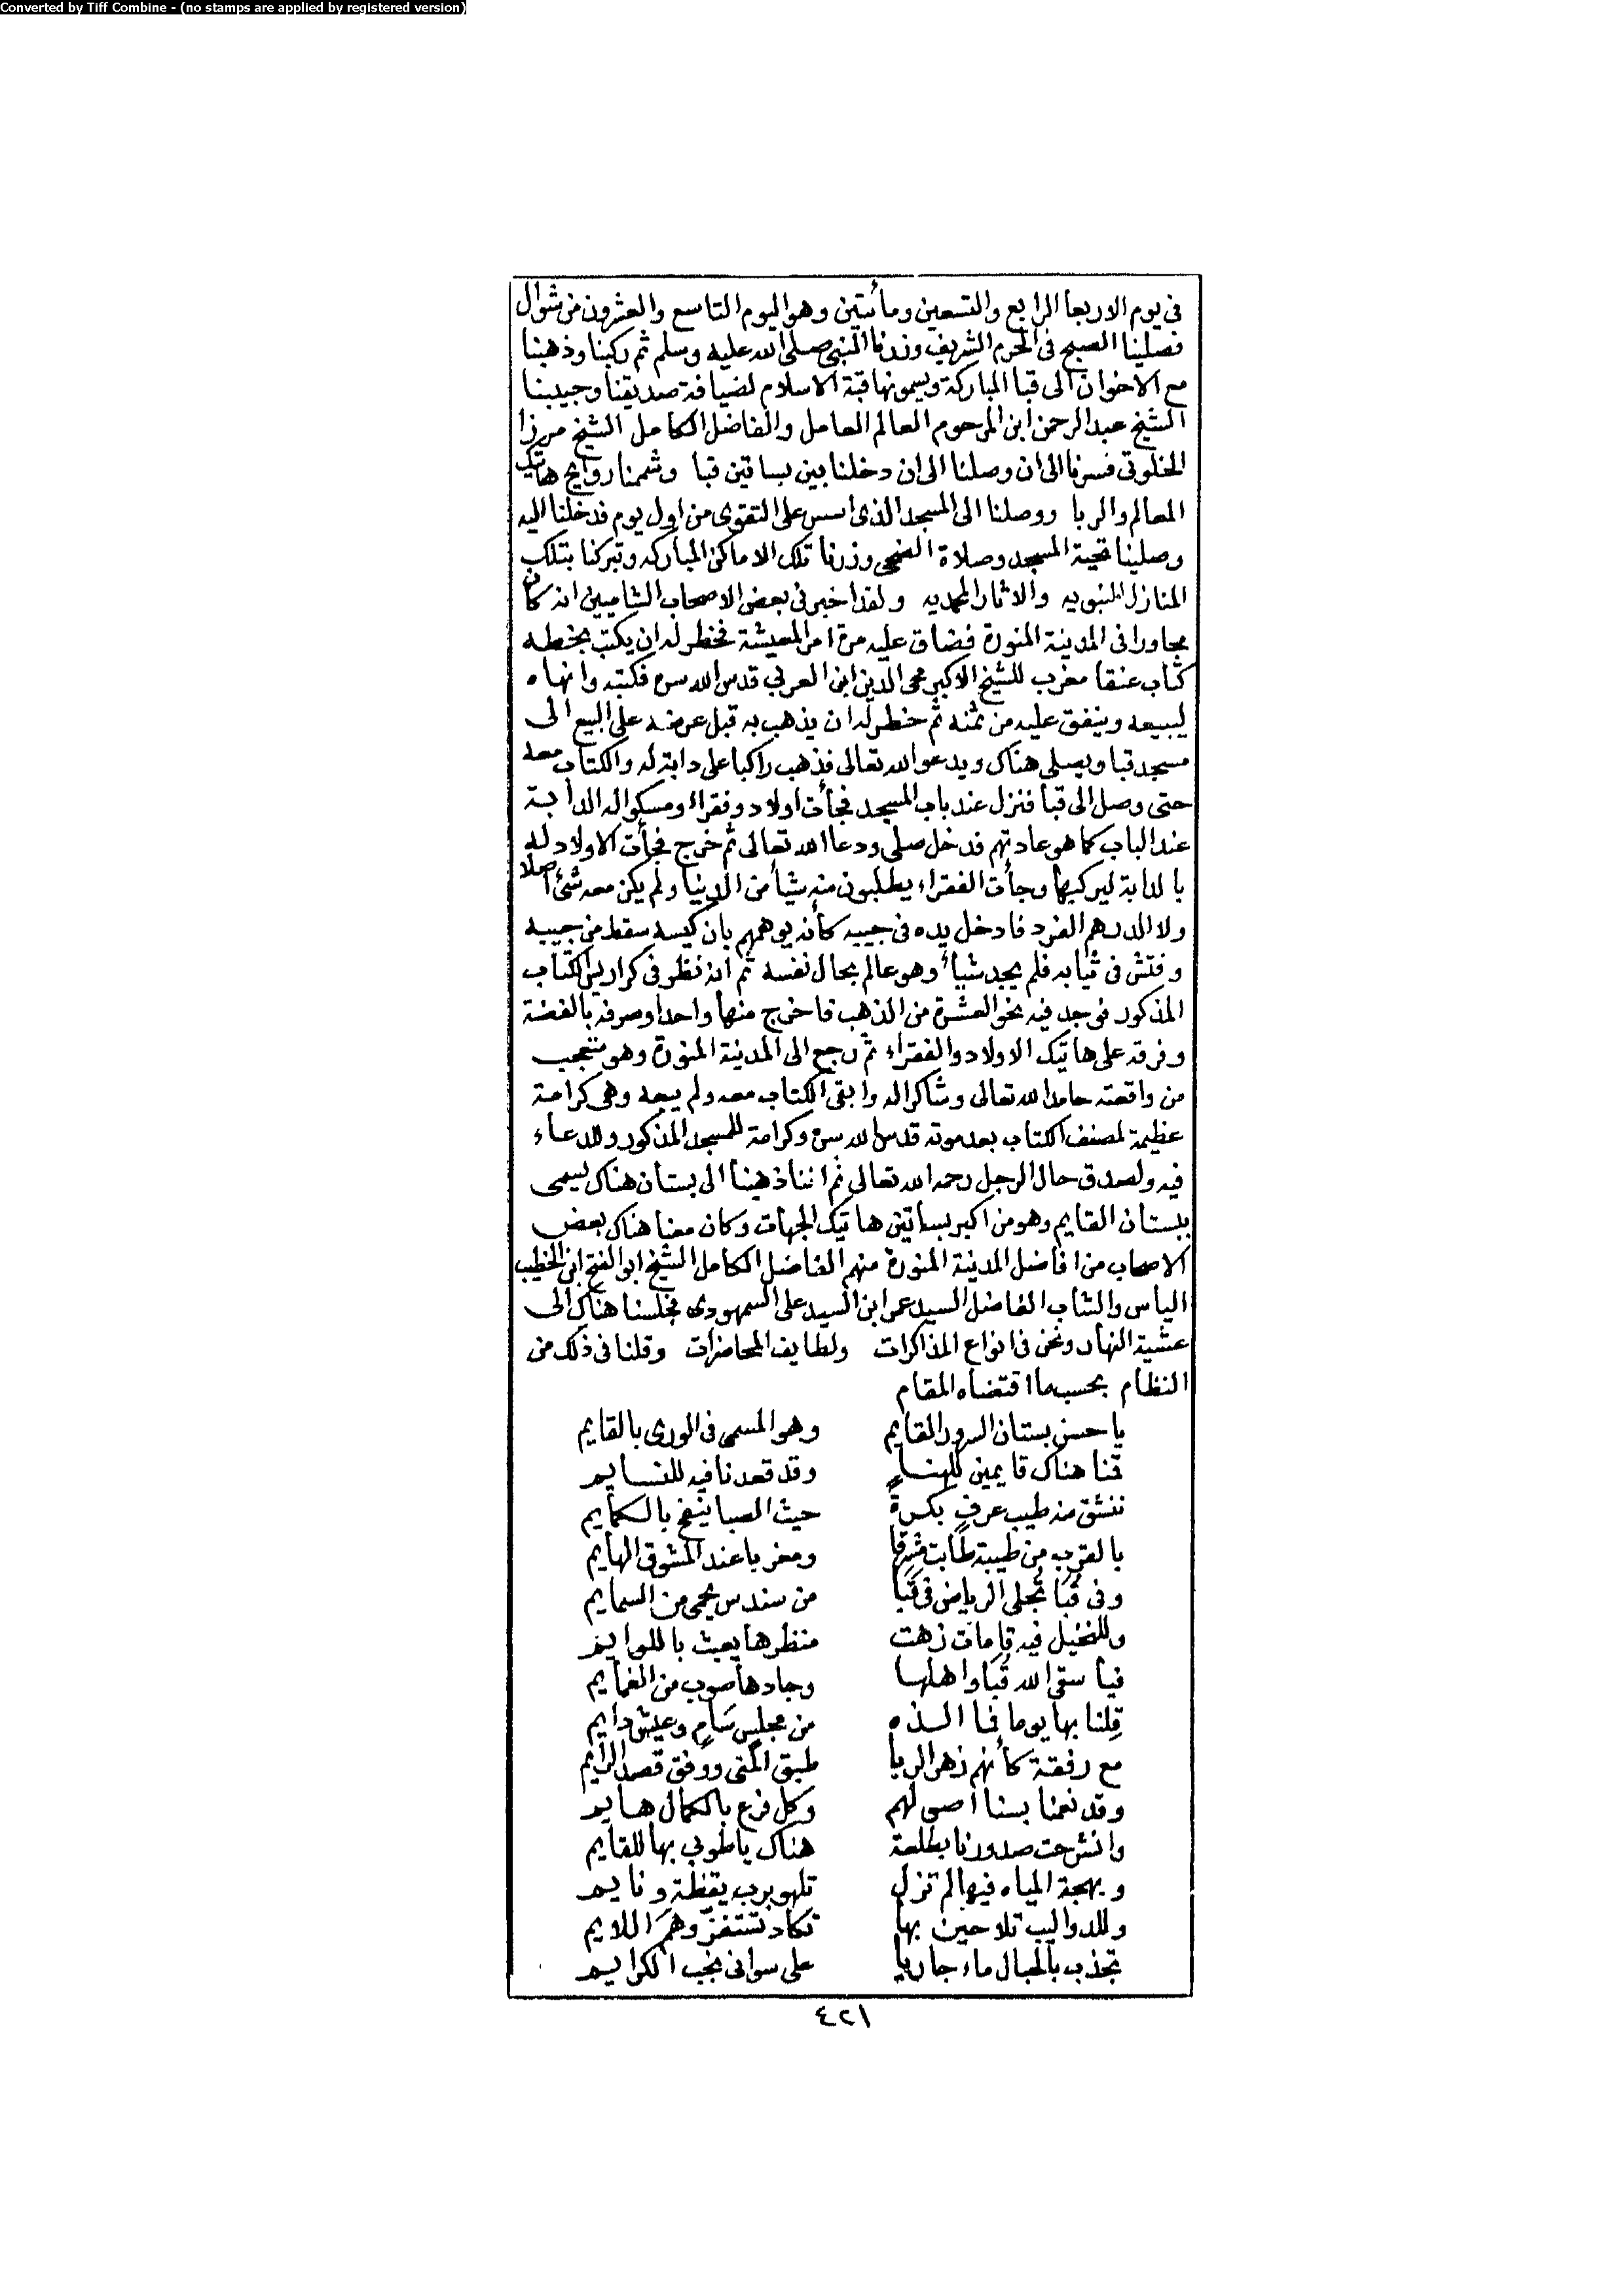 Converted by Tiff Combine - (no stamps are applied by registered version)
فى يوم الاربعا الرابع والتسعين ومأتين وهو اليوم التاسع والعشرون من شوال
فصلينا الصبح فى الحرم الشريف وزرنا النبى صلى الله عليه وسلم ثم ركبنا وذهبنا
مع الاخوان الى قبا المباركة ويسمونها قبة الاسلام لضيافة صديقنا وحبيبنا
الشيخ عبد الرحمن ابن المرحوم العالم العامل والفاضل الكامل الشيخ مرزا
الخلوتى فسرنا الى ان وصلنا الى ان دخلنا بين بساتين قبا وشممنا روايح هاتيك
المعالم والربا ووصلنا الى المسجد الذى اسس على التقوى من اول يوم فدخلنا اليه
وصلينا تحية المسجد وصلاة الضحى وزرنا تلك الاماكن المباركه وتبركنا بتلك
المنازل النبويه والاثار المحمديه ولقد اخبرنى بعض الاصحاب الشاميين انه كان
مجاورا فى المدينة المنورة فضاق عليه مرة امر المعيشة فخطر له ان يكتب بخطه
كتاب عنقا مغرب للشيخ الاكبر محى الدين ابن العربي قدس الله سره فكتبه وانهاه
ليبيعه وينفق عليه من ثمنه ثم خطر له ان يذهب به قبل عرضه على البيع الى
مسجد قبا ويصلى هناك ويدعو الله تعالى فذهب راكبا على دابة له والكتاب معه
حتى وصل الى قبا فنزل عند باب المسجد فجأت اولاد وفقراء ومسكوا له الدابة
عند الباب كما هو عادتهم فدخل صلى ودعا الله تعالى ثم خرج فجأت الاولاد له
بالدابة ليركبها وجأت الفقراء يطلبون منه شيأ من الدنيا ولم يكن معه شئ اصلا
ولا الدرهم الفرد فادخل يده فى جيبه كأنه يوهمهم بان كيسه سقط من جيبه
وفتش فى ثيابه فلم يجد شيأ وهو عالم بحال نفسه ثم انه نظر فى كراريس الكتاب
المذكور فوجد فيه نحو العشرة من الذهب فاخرج منها واحدا وصرفه بالفضة
وفرقه على هاتيك الاولاد والفقراء ثم رجع الى المدينة المنورة وهو متعجب
من واقعته حامدا لله تعالى وشاكرا له وابقى الكتاب معه ولم يبعه وهى كرامة
عظيمة لمصنف الكتاب بعد موته قدس الله سره وكرامة للمسجد المذكور وللدعاء
فيه ولصدق حال الرجل رحمه الله تعالى ثم اننا ذهبنا الى بستان هناك يسمى
ببستان القايم وهو من اكبر بساتين هاتيك الجهات وكان معنا هناك بعض
الاصحاب من افاضل المدينة المنورة منهم الفاضل الكامل الشيخ ابو الفتح ابن الخطيب
الياس والشاب الفاضل السيد عمر ابن السيد على السمهودى فجلسنا هناك الى
عشية النهار ونحن فى انواع المذاكرات ولطايف المحاضرات وقلنا فى ذلك من
النظام بحسب ما اقتضاه المقام
يا حسن بستان السرور القايم وهو المسمى فى الورى بالقايم
قمنا هناك قايمين للهناء وقد قعدنا فيه للنسايم
ننشق منه طيب عرف بكرة حيث الصبا ينفخ بالكمايم
بالقرب من طيبة طابت مشرقا ومغربا عند المشوق الهايم
وفى قبا تجلى الرياض فى قبا من سندس يحمى من السمايم
وللنخيل فيه قامات زهت منظرها يعبث باللوايم
فيا سقى الله قبا واهلها وجادها صوب من الغمايم
قلنا بها يوما فما الذه من مجلس سام وعيش دايم
مع رفقة كأنهم زهر الربا طبق المنى ووفق قصد الرايم
وقد نعمنا بسنا اصولهم وكل فرع بالكمال هايم
وانشرحت صدورنا بطلعة هناك يا طوبى بها للقايم
وبهجة المياه فيها لم تزل تلهو برب يقظة ونايم
وللدواليب تلاحين بها تكاد تستفز وهم اللايم
تجذب بالحبال ماء جاريا على سوانى نجب الكرايم
٤٢١